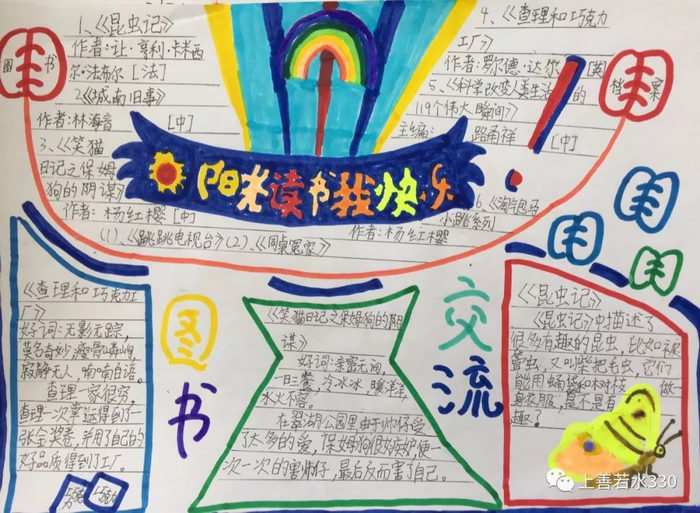 1、《昆虫记》
作者:让·亨利·卡米西
尔·法布尔 [法]
2《城南旧事》
作者:林海音 [中]
3、《笑猫
日记之保姆
狗的阴谋》
作者:杨红樱 [中]
(1)、《跳跳电视台》(2)、《同桌冤家》
4、《查理和巧克力
工厂》
作者:罗尔德·达尔 [英]
5、《科学改变人类生活的
119个伟大瞬间》
主编: 路甬祥 [中]
6、《淘气包马
小跳系列》
作者:杨红樱
图书
档案
阳光读书我快乐
图书
交流
《查理和巧克力工
厂》
好词:无影无踪,
莫名奇妙,瘦骨嶙峋,
寂静无人、喃喃自语。
查理一家很穷,
查理一次幸运得到了一
张金奖券,并用了自己的
好品质得到了工厂。
《笑猫日记之保姆狗的阴
谋》
好词:亲密无间,
一日三餐、冷冰冰,暖洋洋,
水火不容。
在翠湖公园里由于帅仔受
了太多的爱,保姆狗很妒嫉,便一
次一次的害帅仔,最后反而害了自己。
《昆虫记》
《昆虫记》中描述了
很多有趣的昆虫,比如:被
管虫,又叫柴把毛虫,它们
能用 做一
身衣服,是不是有
趣?
上善若水330